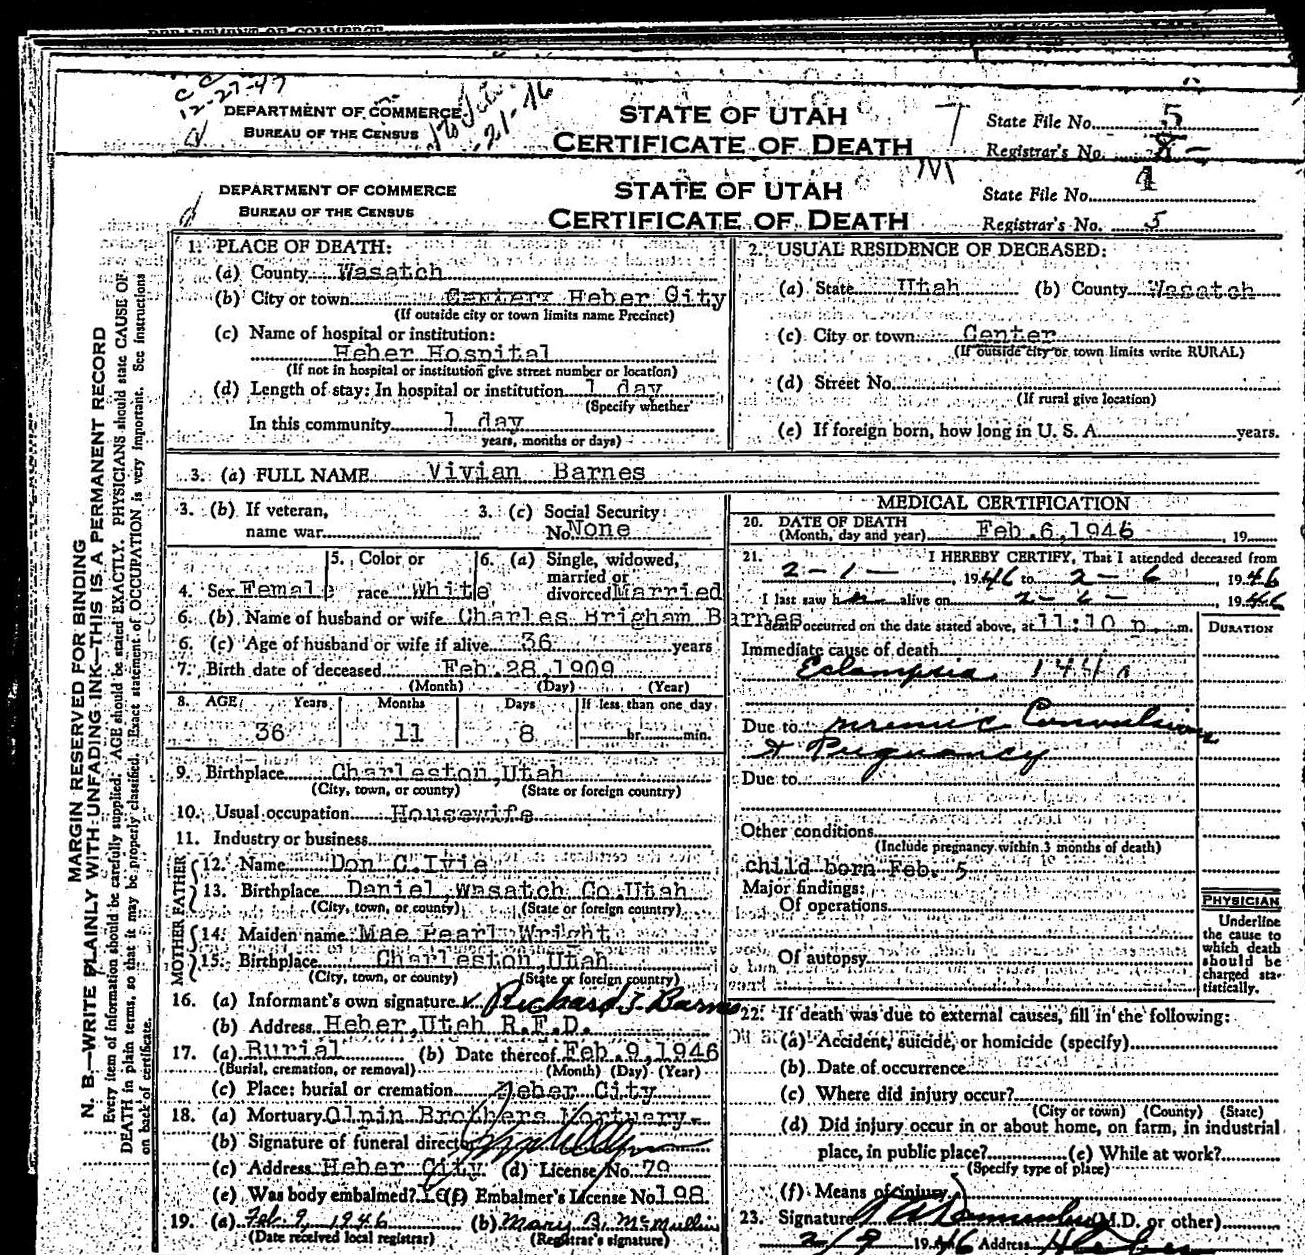 DEPARTMENT OF COMMERCE
CC
12-27-47
DEPARTMENT OF COMMERCE
BUREAU OF THE CENSUS
STATE OF UTAH
CERTIFICATE OF DEATH
State File No. 5
Registrar's No. 8
DEPARTMENT OF COMMERCE
BUREAU OF THE CENSUS
STATE OF UTAH
CERTIFICATE OF DEATH
State File No.
Registrar's No. 5
MARGIN RESERVED FOR BINDING
N. B.—WRITE PLAINLY WITH UNFADING INK—THIS IS A PERMANENT RECORD
Every item of information should be carefully supplied. AGE should be stated EXACTLY. PHYSICIANS should state CAUSE OF
DEATH in plain terms, so that it may be properly classified. Exact statement of OCCUPATION is very important. See instructions
on back of certificate.
1. PLACE OF DEATH:
(a) County Wasatch
(b) City or town Center Heber City
(If outside city or town limits name Precinct)
(c) Name of hospital or institution:
Heber Hospital
(If not in hospital or institution give street number or location)
(d) Length of stay: In hospital or institution 1 day
(Specify whether
In this community 1 day
years, months or days)
2. USUAL RESIDENCE OF DECEASED:
(a) State Utah (b) County Wasatch
(c) City or town Center
(If outside city or town limits write RURAL)
(d) Street No.
(If rural give location)
(e) If foreign born, how long in U. S. A. years.
3. (a) FULL NAME Vivian Barnes
3. (b) If veteran, 3. (c) Social Security
name war No. None
5. Color or 6. (a) Single, widowed,
married or
4. Sex Female race White divorced Married
6. (b) Name of husband or wife Charles Brigham Barnes
6. (c) Age of husband or wife if alive 36 years
7. Birth date of deceased Feb. 28, 1909
(Month) (Day) (Year)
8. AGE Years Months Days If less than one day
36 11 8 hr. min.
9. Birthplace Charleston, Utah
(City, town, or county) (State or foreign country)
10. Usual occupation Housewife
11. Industry or business
FATHER
12. Name Don C. Ivie
13. Birthplace Daniel, Wasatch Co. Utah
(City, town, or county) (State or foreign country)
MOTHER
14. Maiden name Mae Pearl Wright
15. Birthplace Charleston, Utah
(City, town, or county) (State or foreign country)
16. (a) Informant's own signature Richard Barnes
(b) Address Heber, Utah R.F.D.
17. (a) Burial (b) Date thereof Feb. 9, 1946
(Burial, cremation, or removal) (Month) (Day) (Year)
(c) Place: burial or cremation Heber City
18. (a) Mortuary Olpin Brothers Mortuary
(b) Signature of funeral director
(c) Address Heber City (d) License No. 79
(e) Was body embalmed? Yes (f) Embalmer's License No. 198
19. (a) Feb. 9, 1946 (b) Mary B. McMullin
(Date received local registrar) (Registrar's signature)
MEDICAL CERTIFICATION
20. DATE OF DEATH
(Month, day and year) Feb. 6, 1946, 19
21. I HEREBY CERTIFY, That I attended deceased from
2-1-, 1946 to 2-6, 1946
I last saw h alive on 2-6-, 1946
death occurred on the date stated above, at 11:10 p. m.
DURATION
Immediate cause of death
Eclampsia 144a
Due to uremic Convulsions
& Pregnancy
Due to
Other conditions
(Include pregnancy within 3 months of death)
child born Feb. 5
Major findings:
Of operations
Of autopsy
PHYSICIAN
Underline
the cause to
which death
should be
charged sta-
tistically.
22. If death was due to external causes, fill in the following:
(a) Accident, suicide, or homicide (specify)
(b) Date of occurrence
(c) Where did injury occur?
(City or town) (County) (State)
(d) Did injury occur in or about home, on farm, in industrial
place, in public place? (e) While at work?
(Specify type of place)
(f) Means of injury
23. Signature (M.D. or other)
2/9 1946 Address Heber